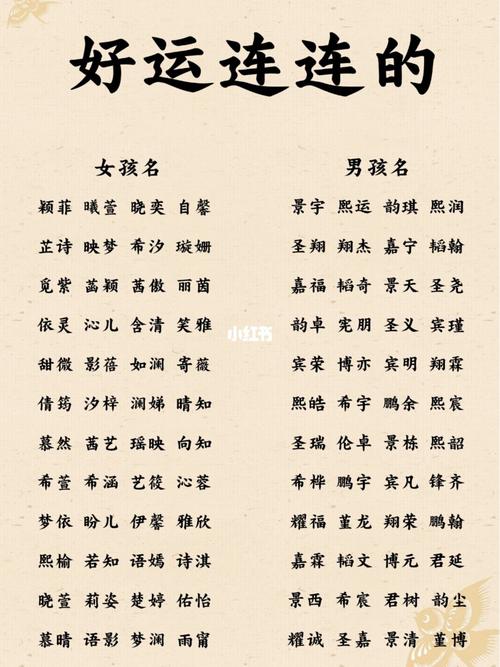 好运连连的
女孩名
颖菲 曦萱 晓奕 自馨
芷诗 映梦 希汐 璇姗
觅紫 菡颖 茜傲 丽茵
依灵 沁儿 含清 笑雅
甜微 影蓓 如澜 寄薇
倩筠 汐梓 澜娣 晴知
慕然 茜艺 瑶映 向知
希萱 希涵 艺筱 沁蓉
梦依 盼儿 伊馨 雅欣
熙榆 若知 语嫣 诗淇
晓萱 莉姿 楚婷 佑怡
慕晴 语影 梦澜 雨甯
男孩名
景宇 熙运 韵琪 熙润
圣翔 翔杰 嘉宁 韬翰
嘉福 韬奇 景天 圣尧
韵卓 宪朋 圣义 宾瑾
宾荣 博亦 宾明 翔霖
熙皓 希宇 鹏余 熙宸
圣瑞 伦卓 景栋 熙韶
希桦 鹏宇 宾凡 锋齐
耀福 堇龙 翔荣 鹏翰
嘉霖 韬文 博元 君延
景西 希宸 君树 韵尘
耀诚 圣嘉 景清 堇博
小红书